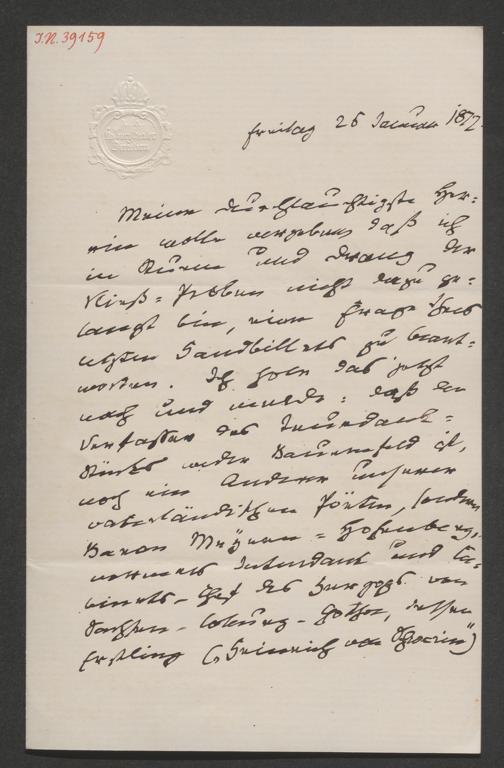 I.N. 39159
Freitag 26 Januar 1872.
Meine durchlauchtigste Her=
rin wolle vergeben daß ich
in Sturm und Drang der
Vließ=Proben nicht dazu ge=
langt bin, eine Frage Ihres
letzten Handbillets zu beant=
worten. Ich hole das jetzt
nach und melde: daß der
Verfasser des
Stücks weder Bauernfeld ist,
noch ein Anderer unserer
vaterländischen Poeten, sondern
Baron Meyern=Hohenberg,
vormals Intendant und Ca=
binets-Chef des Herzogs von
Sachsen-Coburg-Gotha, dessen
Erstling („Heinrich von Schwerin")